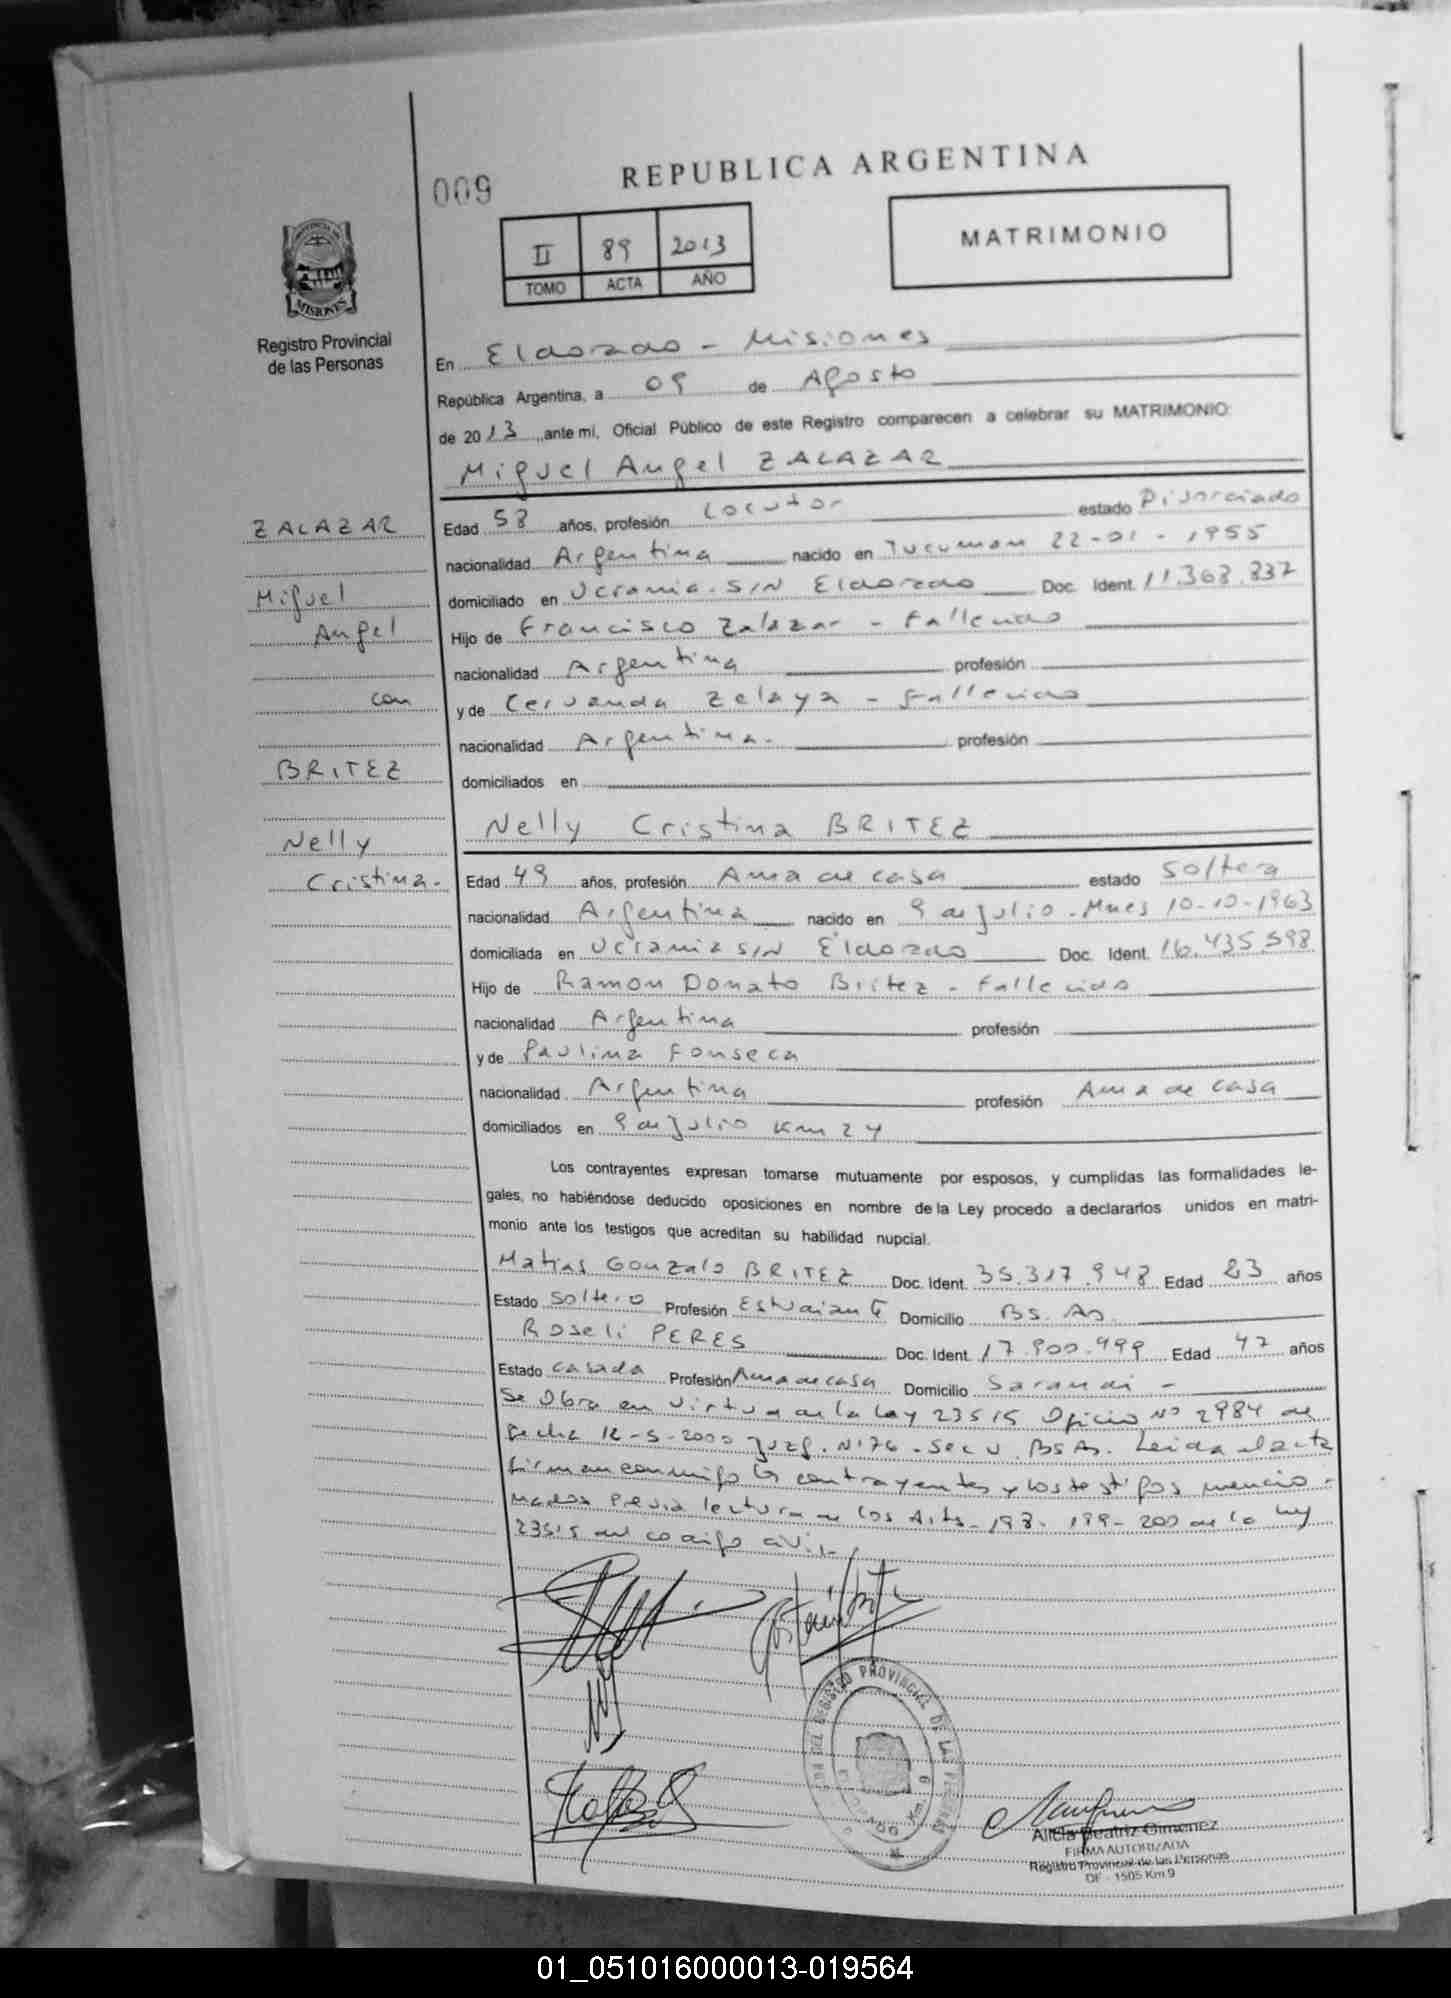 REPUBLICA ARGENTINA
009
MATRIMONIO
II 89 2013
TOMO ACTA AÑO
PROVINCIA DE
MISIONES
Registro Provincial
de las Personas
En Eldorado - Misiones
República Argentina, a 09 de Agosto
de 2013, ante mi, Oficial Público de este Registro comparecen a celebrar su MATRIMONIO:
Miguel Angel ZALAZAR
ZALAZAR
Miguel
Angel
con
BRITEZ
Nelly
Cristina.
Edad 58 años, profesión Locutor estado Divorciado
nacionalidad Argentina nacido en Tucuman 22-01-1955
domiciliado en Ucrania S/N Eldorado Doc. Ident. 11.368.837
Hijo de Francisco Zalazar - Fallecido
nacionalidad Argentina profesión
y de Cervanda Zelaya - Fallecida
nacionalidad Argentina. profesión
domiciliados en
Nelly Cristina BRITEZ
Edad 49 años, profesión Ama de casa estado Soltera
nacionalidad Argentina nacido en 9 de Julio - Mnes 10-10-1963
domiciliada en Ucrania S/N Eldorado Doc. Ident. 16.435.598
Hijo de Ramon Donato Britez - Fallecido
nacionalidad Argentina profesión
y de Paulina Fonseca
nacionalidad Argentina profesión Ama de casa
domiciliados en 9 de Julio Km 24
Los contrayentes expresan tomarse mutuamente por esposos, y cumplidas las formalidades le-
gales, no habiéndose deducido oposiciones en nombre de la Ley procedo a declararlos unidos en matri-
monio ante los testigos que acreditan su habilidad nupcial.
Matias Gonzalo BRITEZ Doc. Ident. 35.317.948 Edad 23 años
Estado Soltero Profesión Estudiante Domicilio BS. AS.
Roseli PERES Doc. Ident. 17.900.499 Edad 47 años
Estado Casada Profesión Ama de casa Domicilio Sarandi -
Se Obra en virtud de la Ley 23515 Oficio Nº 2984 de
fecha 12-5-2000 Juzg. Nº 76. Sec U. BS AS. Leida el acta
firman conmigo los contrayentes y los testigos mencio-
nados Previa lectura de los Arts. 198 - 199 - 200 de la Ley
23515 del codigo civil
REGISTRO PROVINCIAL DE LAS PERSONAS
ELDORADO Km. 9
Alicia Beatriz Gimenez
FIRMA AUTORIZADA
Registro Provincial de las Personas
OF - 1505 Km 9
01_051016000013-019564